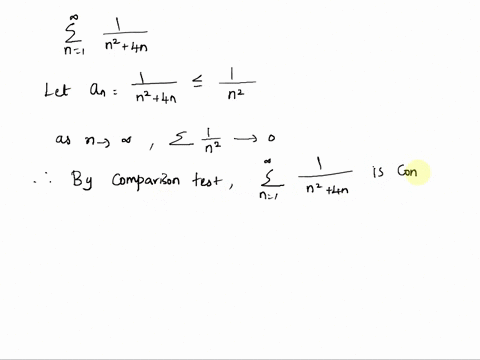 ∞ Σ n=1 1/(n²+4n)
Let aₙ = 1/(n²+4n) ≤ 1/n²
as n→∞, Σ 1/n² → 0
∴ By Comparison test, ∞ Σ n=1 1/(n²+4n) is Con